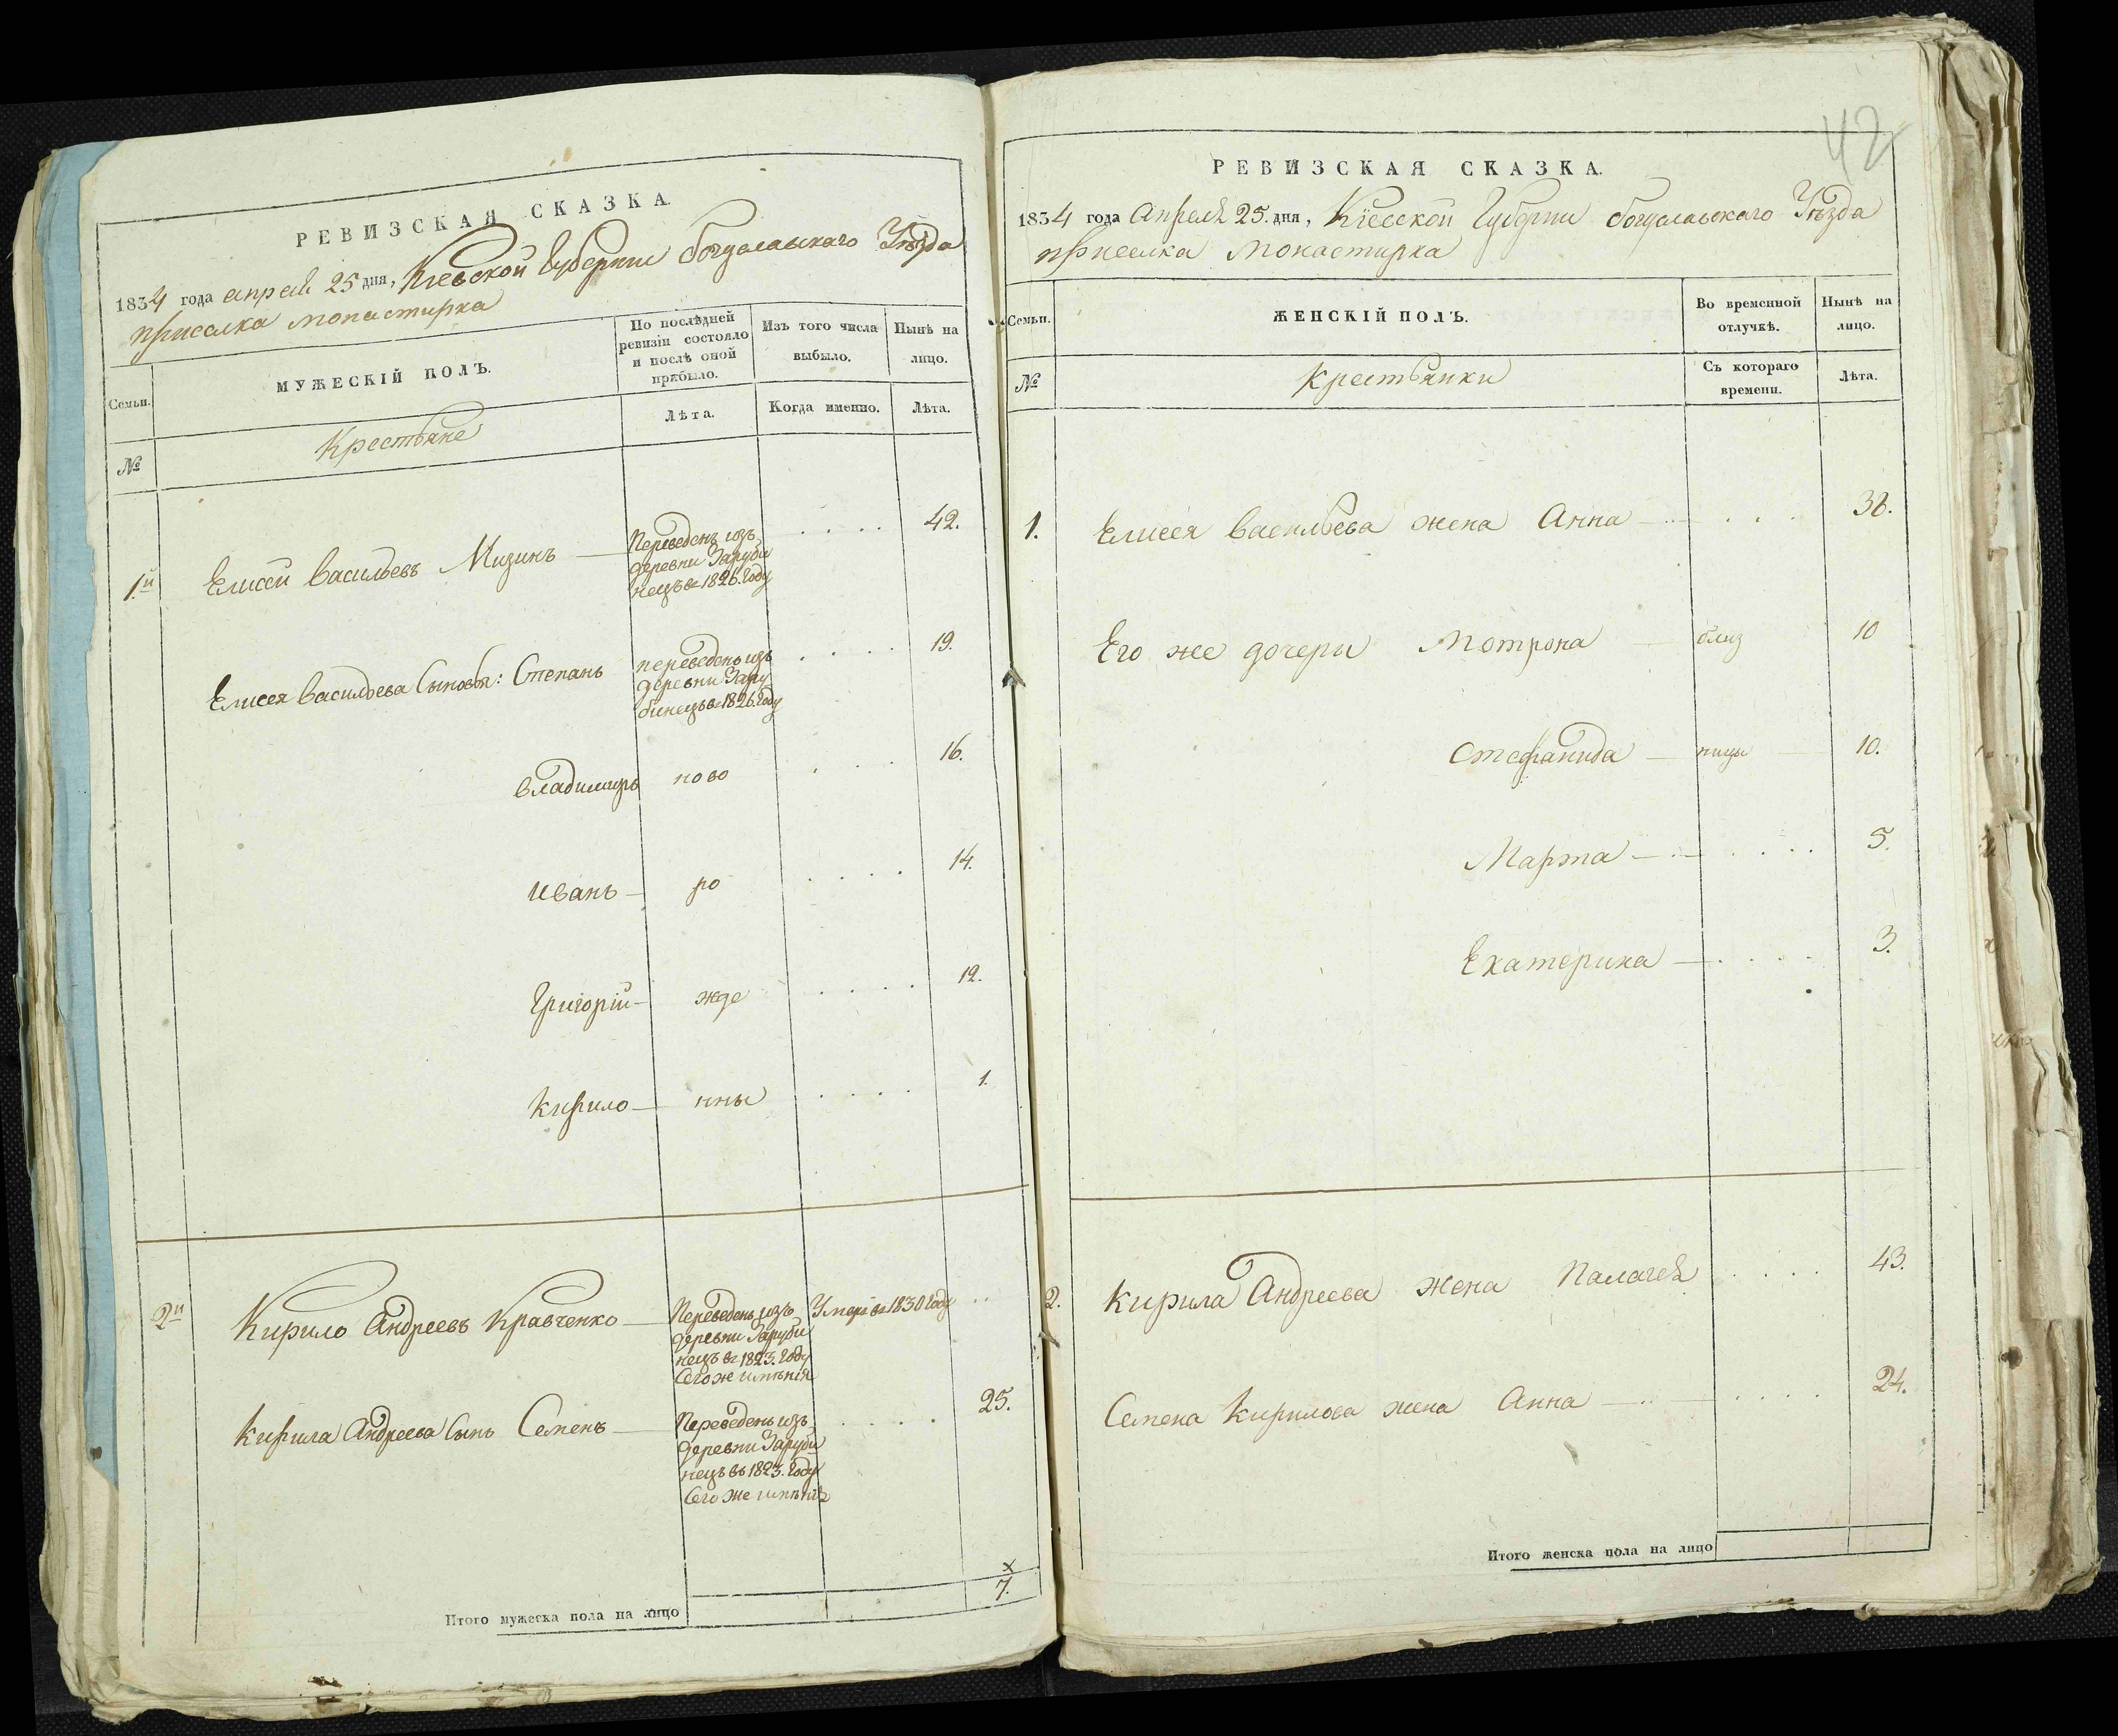 РЕВИЗСКАЯ СКАЗКА
1834 года апреля 25 дня, Кіевской Губерніи богуславскаго Уѣзда
приселка монастирка
Семьи.
МУЖЕСКІЙ ПОЛЪ.
По послѣдней
ревизіи состояло
и послѣ оной
прибыло.
Изъ того числа
выбыло.
Нынѣ на
лицо.
№
Крестьяне
Лѣта.
Когда именно.
Лѣта.
1.й Елисей Васильевъ Мизинъ — Переведенъ изъ . . . . 42.
деревни Заруби
нецъ въ 1826. году
Елисея Васильева Сыновья: Степанъ переведенъ изъ . . . . 19.
деревни Зару
бинецъ въ 1826. году
Владимиръ ново . . . 16.
Иванъ — ро . . . . 14.
Григорій — жде . . . . 12.
Кирило — нны . . . . 1.
2й Кирило Андреевъ Кравченко — Переведенъ изъ Умеръ въ 1830 году . .
деревни Заруби
нецъ въ 1823. году
Сегоже имѣнія
Кирила Андреева Сынъ Семенъ — Переведенъ изъ . . . . 25.
деревни Заруби
нецъ въ 1823. году
Сего же имѣнія
х
Итого мужеска пола на лицо 7.
42
РЕВИЗСКАЯ СКАЗКА.
1834 года Апреля 25. дня, Кіевской Губерніи богуславскаго Уѣзда
приселка Монастирка
Семьи.
ЖЕНСКІЙ ПОЛЪ.
Во временной
отлучкѣ.
Нынѣ на
лицо.
№
Крестьянки
Съ котораго
времени.
Лѣта.
1. Елисея Васильева жена Анна . . . 38.
Его же дочери Мотрона — близ 10
Стефанида — ницы — 10.
Марта — . . . . 5.
Екатерина — . . . . 3.
2. Кирила Андреева жена Палагея . . . . 43.
Семена Кирилова жена Анна — . . . . 24.
Итого женска пола на лицо